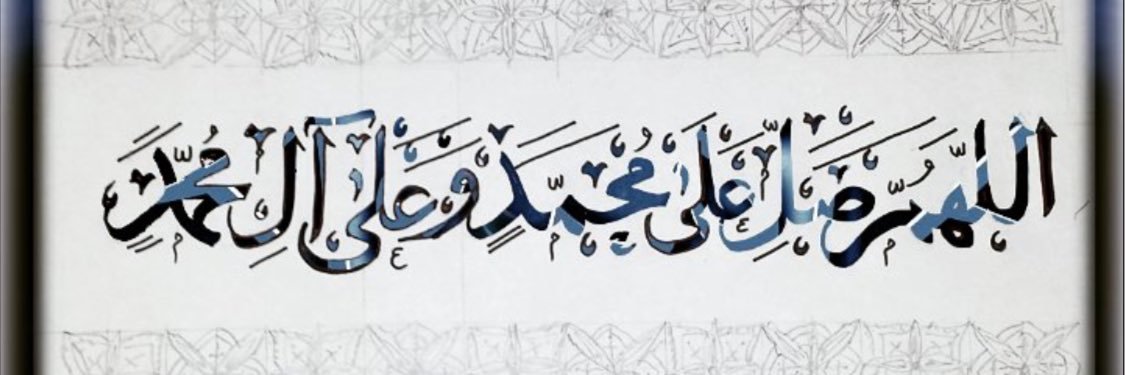 اللّٰهُمَّ صَلِّ عَلَىٰ مُحَمَّدٍ وَعَلَىٰ آلِ مُحَمَّدٍ